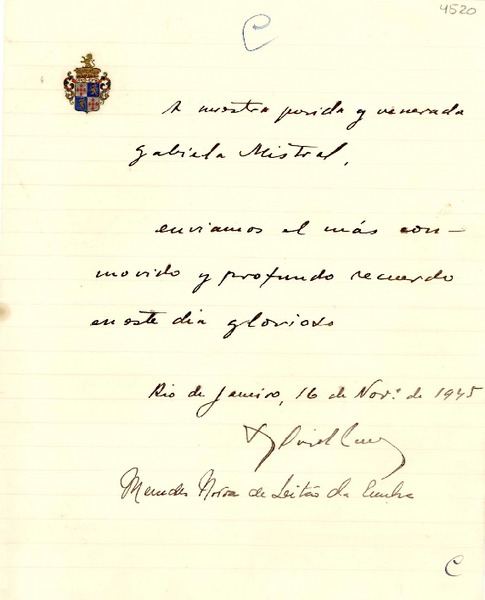 4520
C
A nuestra querida y venerada
Gabriela Mistral,
enviamos el más con-
movido y profundo recuerdo
en este dia glorioso
Rio de Janeiro, 16 de Nov.º de 1945
de Leitão da Cunha
C